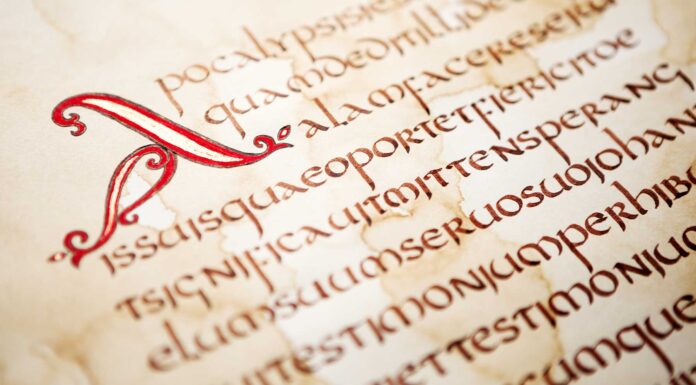 Apocalypsisies
quamdeditillide
alamfacereseru
issuisquaeoportetfiericitoe
tsignificauitmittensperang
elumsuumseruosuojohan
uitestimoniumperhibu
iettestimoniu
cumque